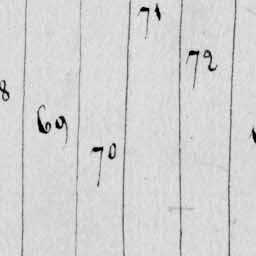 71
72
69
70